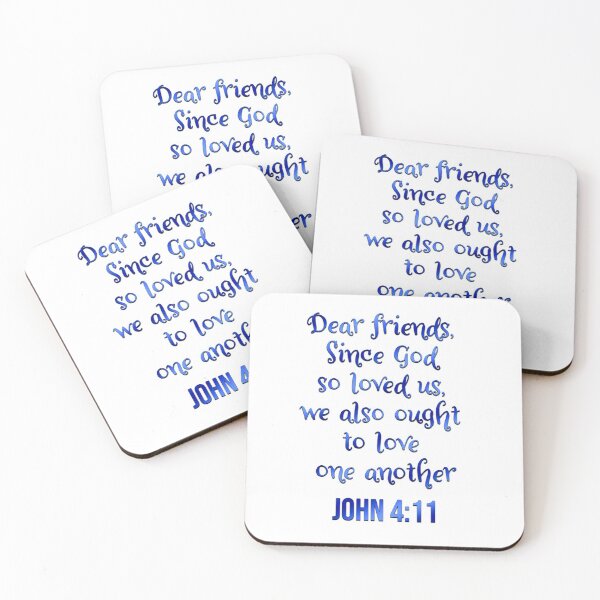 Dear friends,
Since God
so loved us,
we also ought
er
Dear friends,
Since God
so loved us,
we also ought
to love
one another
Dear friends,
Since God
so loved us,
we also ought
to love
one anoth
JOHN 4
Dear friends,
Since God
so loved us,
we also ought
to love
one another
JOHN 4:11